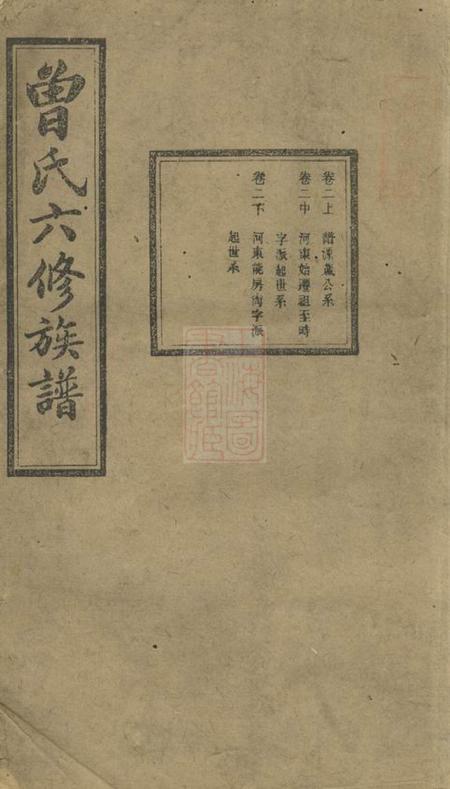 曾氏六修族譜
卷二上 譜派歲公系
卷二中 河東始遷祖至時
字派起世系
卷二下 河東龍房尚字派
起世系
上海圖
書館藏